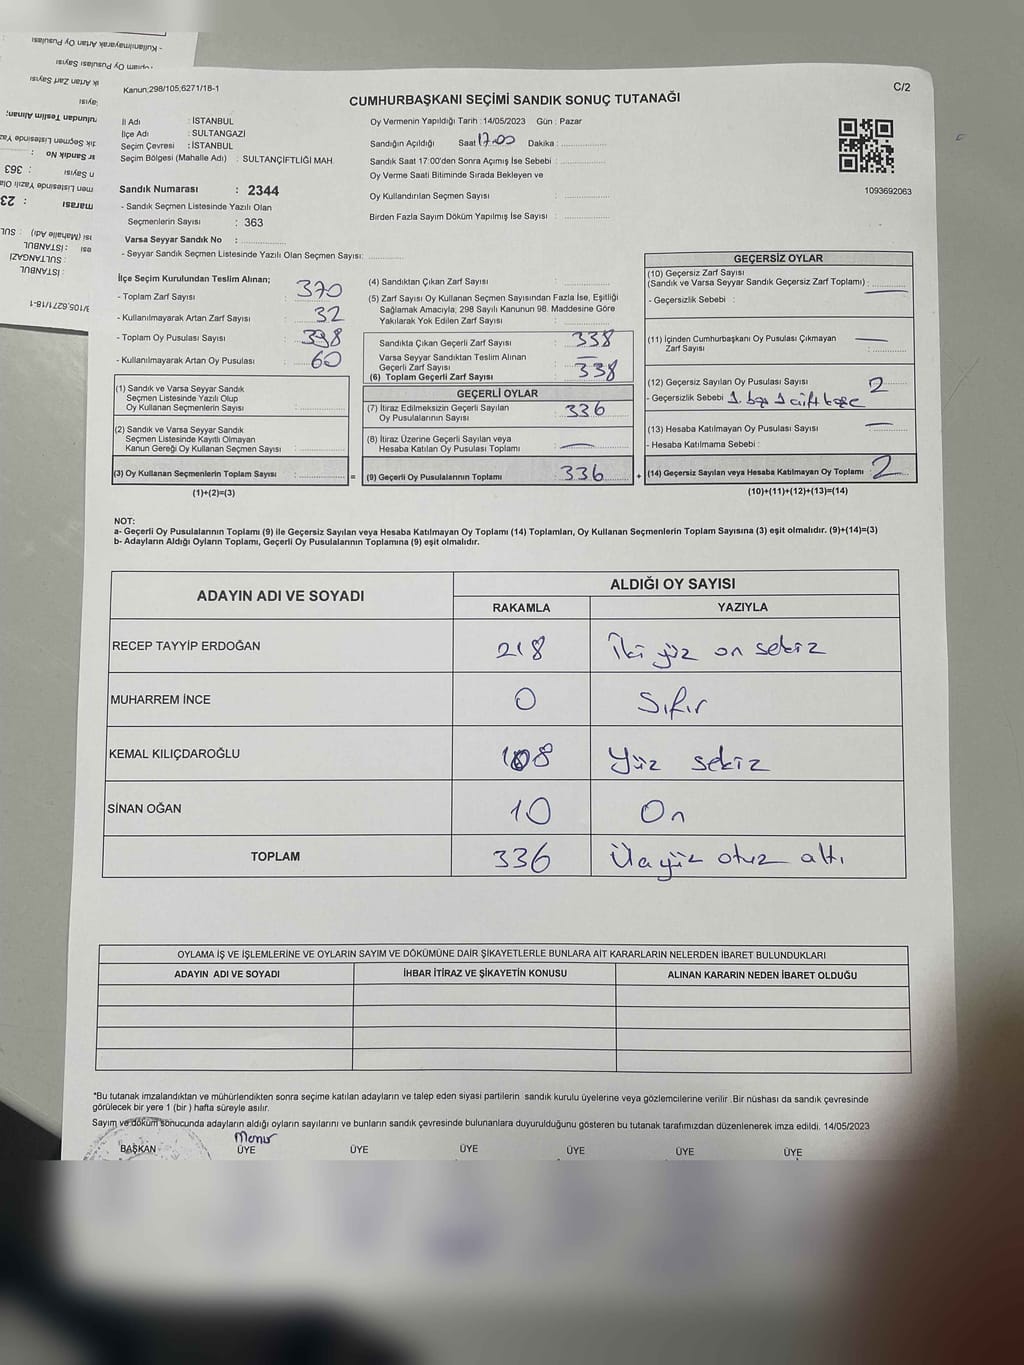 Kanun;298/105;6271/18-1
C/2
CUMHURBAŞKANI SEÇİMİ SANDIK SONUÇ TUTANAĞI
İl Adı : İSTANBUL
İlçe Adı : SULTANGAZİ
Seçim Çevresi : İSTANBUL
Seçim Bölgesi (Mahalle Adı) : SULTANÇİFTLİĞİ MAH.
Sandık Numarası : 2344
- Sandık Seçmen Listesinde Yazılı Olan
Seçmenlerin Sayısı : 363
Varsa Seyyar Sandık No :
- Seyyar Sandık Seçmen Listesinde Yazılı Olan Seçmen Sayısı:
Oy Vermenin Yapıldığı Tarih : 14/05/2023 Gün : Pazar
Sandığın Açıldığı Saat 17:00 Dakika :
Sandık Saat 17:00'den Sonra Açımış İse Sebebi :
Oy Verme Saati Bitiminde Sırada Bekleyen ve
Oy Kullandırılan Seçmen Sayısı :
Birden Fazla Sayım Döküm Yapılmış İse Sayısı :
1093692063
İlçe Seçim Kurulundan Teslim Alınan;
- Toplam Zarf Sayısı : 370
- Kullanılmayarak Artan Zarf Sayısı : 32
- Toplam Oy Pusulası Sayısı : 398
- Kullanılmayarak Artan Oy Pusulası : 60
(1) Sandık ve Varsa Seyyar Sandık
Seçmen Listesinde Yazılı Olup
Oy Kullanan Seçmenlerin Sayısı :
(2) Sandık ve Varsa Seyyar Sandık
Seçmen Listesinde Kayıtlı Olmayan
Kanun Gereği Oy Kullanan Seçmen Sayısı :
(3) Oy Kullanan Seçmenlerin Toplam Sayısı :
(1)+(2)=(3)
(4) Sandıktan Çıkan Zarf Sayısı :
(5) Zarf Sayısı Oy Kullanan Seçmen Sayısından Fazla İse, Eşitliği
Sağlamak Amacıyla; 298 Sayılı Kanunun 98. Maddesine Göre
Yakılarak Yok Edilen Zarf Sayısı :
Sandıkta Çıkan Geçerli Zarf Sayısı : 338
Varsa Seyyar Sandıktan Teslim Alınan
Geçerli Zarf Sayısı : —
(6) Toplam Geçerli Zarf Sayısı : 338
GEÇERLİ OYLAR
(7) İtiraz Edilmeksizin Geçerli Sayılan
Oy Pusulalarının Sayısı : 336
(8) İtiraz Üzerine Geçerli Sayılan veya
Hesaba Katılan Oy Pusulası Toplamı : —
= (9) Geçerli Oy Pusulalarının Toplamı : 336 +
GEÇERSİZ OYLAR
(10) Geçersiz Zarf Sayısı
(Sandık ve Varsa Seyyar Sandık Geçersiz Zarf Toplamı) : —
- Geçersizlik Sebebi :
(11) İçinden Cumhurbaşkanı Oy Pusulası Çıkmayan
Zarf Sayısı : —
(12) Geçersiz Sayılan Oy Pusulası Sayısı : 2
- Geçersizlik Sebebi 1. 1 çift
(13) Hesaba Katılmayan Oy Pusulası Sayısı : —
- Hesaba Katılmama Sebebi :
(14) Geçersiz Sayılan veya Hesaba Katılmayan Oy Toplamı : 2
(10)+(11)+(12)+(13)=(14)
NOT:
a- Geçerli Oy Pusulalarının Toplamı (9) ile Geçersiz Sayılan veya Hesaba Katılmayan Oy Toplamı (14) Toplamları, Oy Kullanan Seçmenlerin Toplam Sayısına (3) eşit olmalıdır. (9)+(14)=(3)
b- Adayların Aldığı Oyların Toplamı, Geçerli Oy Pusulalarının Toplamına (9) eşit olmalıdır.
ADAYIN ADI VE SOYADI
ALDIĞI OY SAYISI
RAKAMLA YAZIYLA
RECEP TAYYİP ERDOĞAN 218 İki yüz on sekiz
MUHARREM İNCE 0 Sıfır
KEMAL KILIÇDAROĞLU 108 Yüz sekiz
SİNAN OĞAN 10 On
TOPLAM 336 Üçyüz otuz altı
OYLAMA İŞ VE İŞLEMLERİNE VE OYLARIN SAYIM VE DÖKÜMÜNE DAİR ŞİKAYETLERLE BUNLARA AİT KARARLARIN NELERDEN İBARET BULUNDUKLARI
ADAYIN ADI VE SOYADI İHBAR İTİRAZ VE ŞİKAYETİN KONUSU ALINAN KARARIN NEDEN İBARET OLDUĞU
*Bu tutanak imzalandıktan ve mühürlendikten sonra seçime katılan adayların ve talep eden siyasi partilerin sandık kurulu üyelerine veya gözlemcilerine verilir .Bir nüshası da sandık çevresinde
görülecek bir yere 1 (bir ) hafta süreyle asılır.
Sayım ve döküm sonucunda adayların aldığı oyların sayılarını ve bunların sandık çevresinde bulunanlara duyurulduğunu gösteren bu tutanak tarafımızdan düzenlenerek imza edildi. 14/05/2023
BAŞKAN ÜYE ÜYE ÜYE ÜYE ÜYE ÜYE